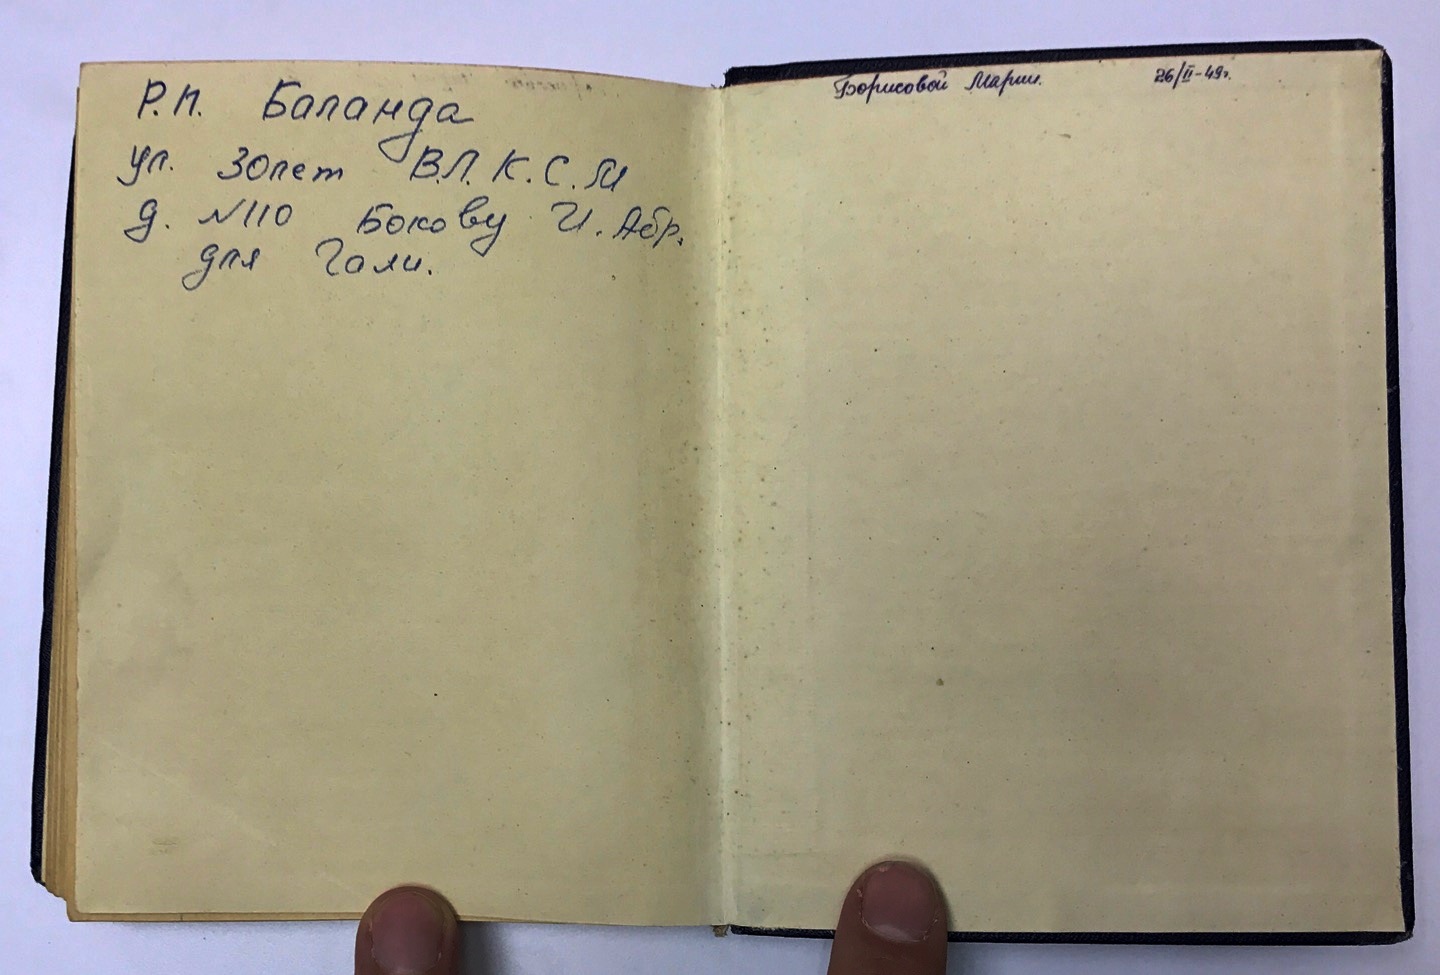 Р.П. Баланда
ул. 30 лет В.Л.К.С.М
д. №110 Бокову И. Абр.
для Гали.
Борисовой Марии. 26/II-49г.